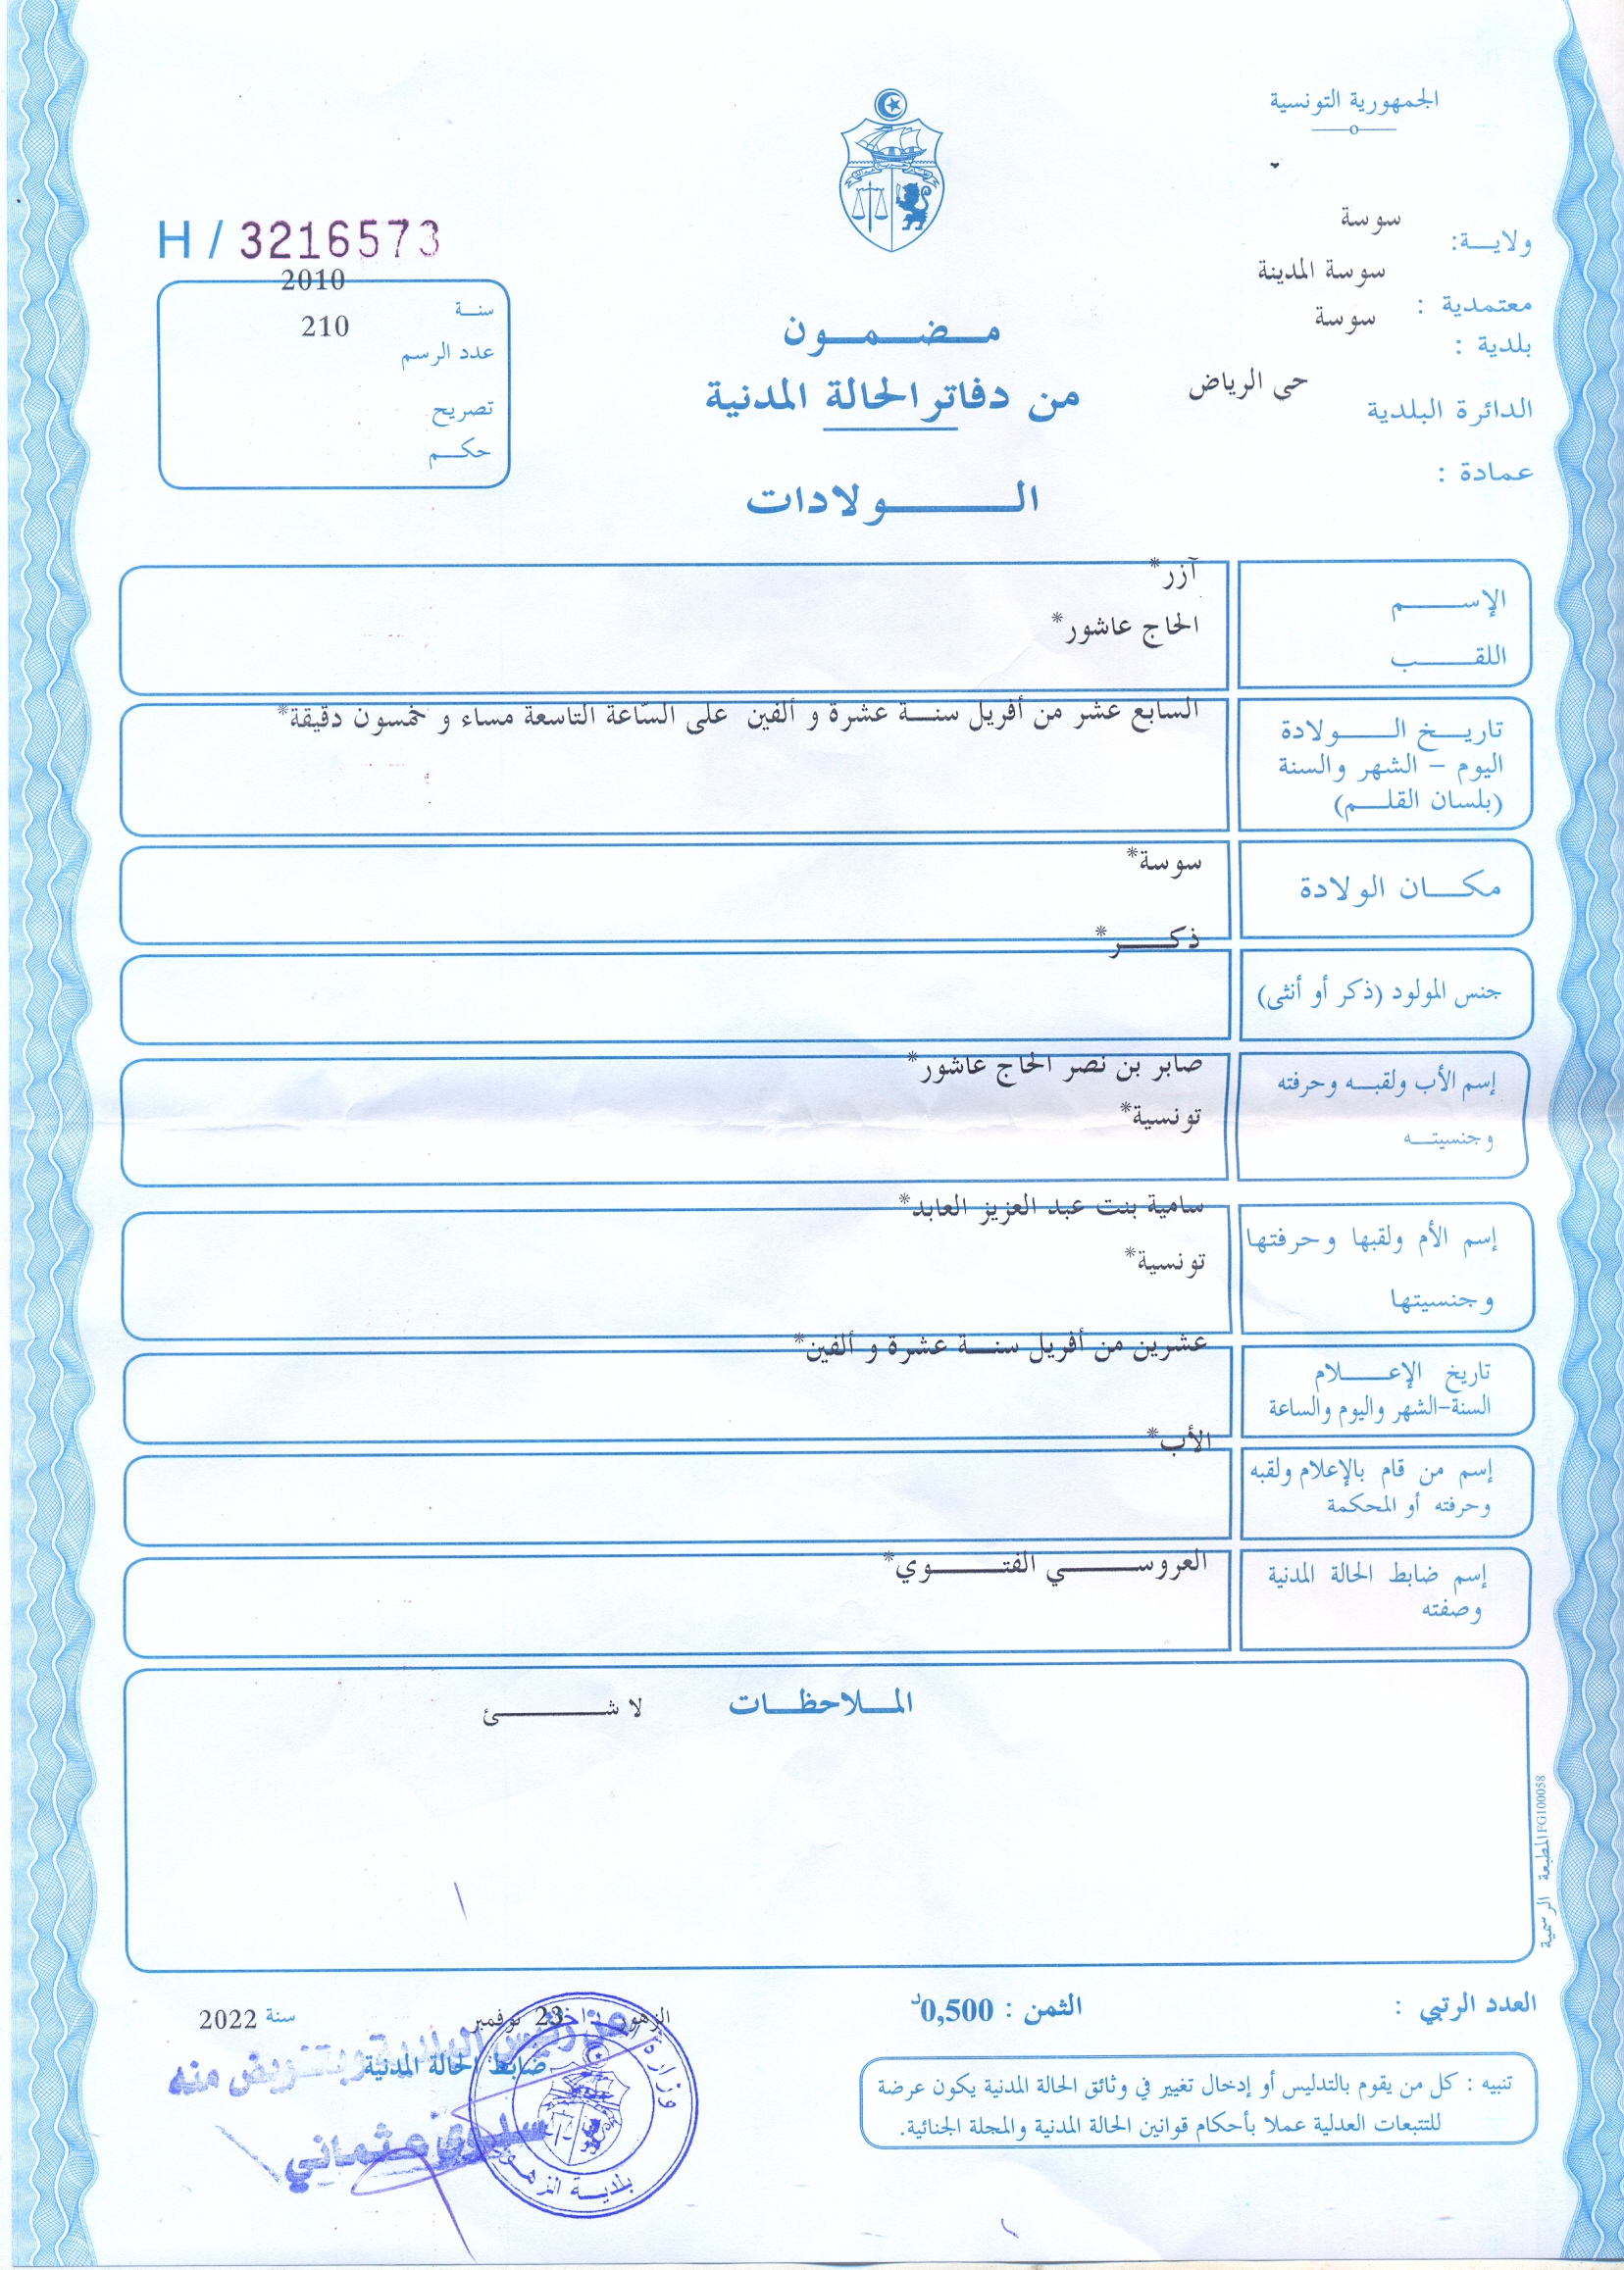 الجمهورية التونسية
سوسة
ولايـــة:
سوسة المدينة
معتمدية :
سوسة
بلدية :
حى الرياض
الدائرة البلدية
عمادة :
مـــضـــمـــون
من دفاتر الحالة المدنية
الـــــولادات
H / 3216573
2010
سنــة
210
عدد الرسم
تصريح
حكـــم
آزر*
الإســـــم
الحاج عاشور*
اللقـــــب
السابع عشر من أفريل سنـــة عشرة و ألفين على السّاعة التاسعة مساء و خمسون دقيقة*
تاريـــخ الــــولادة
اليوم – الشهر والسنة
(بلسان القلـــم)
سوسة*
مكـــان الولادة
ذكــــر*
جنس المولود (ذكر أو أنثى)
صابر بن نصر الحاج عاشور*
إسم الأب ولقبـــه وحرفته
تونسية*
وجنسيتـــه
سامية بنت عبد العزيز العابد*
إسم الأم ولقبها وحرفتها
تونسية*
وجنسيتها
عشرين من أفريل سنـــة عشرة و ألفين*
تاريخ الإعـــــلام
السنة-الشهر واليوم والساعة
الأب*
إسم من قام بالإعلام ولقبه
وحرفته أو المحكمة
العروســـــي الفتـــــوي*
إسم ضابط الحالة المدنية
وصفته
المـــلاحظـــات
لا شـــــئ
المطبعة الرسمية FG100058
العدد الرتبي :
الثمن : 0,500د
الزهور 23 نوفمبر سنة 2022
ضابط الحالة المدنية
عن رئيس البلدية وبتفويض منه
سلوى عثماني
وزارة الداخلية
بلديـــة الزهور
تنبيه : كل من يقوم بالتدليس أو إدخال تغيير في وثائق الحالة المدنية يكون عرضة
للتتبعات العدلية عملا بأحكام قوانين الحالة المدنية والمجلة الجنائية.